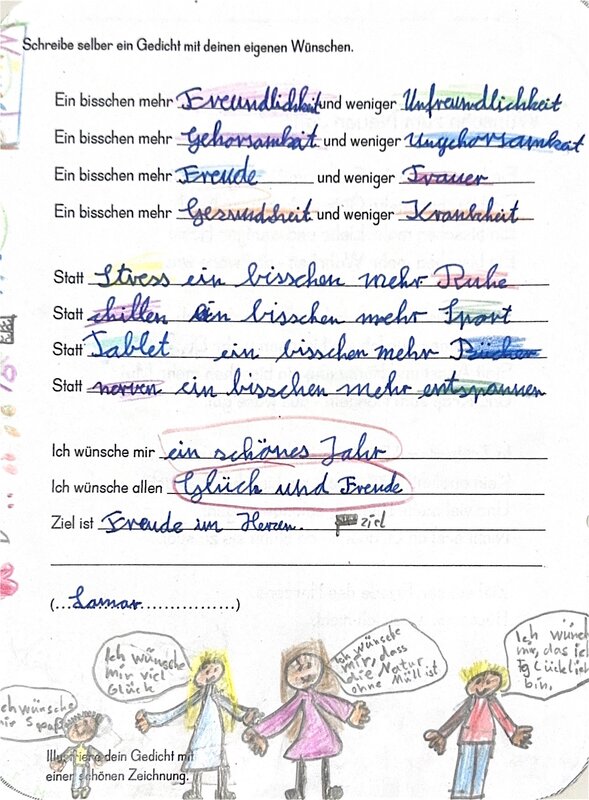 Schreibe selber ein Gedicht mit deinen eigenen Wünschen.
Ein bisschen mehr Freundlichkeit und weniger Unfreundlichkeit
Ein bisschen mehr Gehorsamkeit und weniger Ungehorsamkeit
Ein bisschen mehr Freude und weniger Trauer
Ein bisschen mehr Gesundheit und weniger Krankheit
Statt Stress ein bisschen mehr Ruhe
Statt chillen ein bisschen mehr Sport
Statt Tablet ein bisschen mehr Bücher
Statt nerven ein bisschen mehr entspannen
Ich wünsche mir ein schönes Jahr
Ich wünsche allen Glück und Freude
Ziel ist Freude im Herzen. ziel
(...Lamar................)
Ich wünsche
mir viel
Glück
Ich wünsche
mir, dass
die Natur
ohne Müll ist
Ich wünch
mir, das ich
Glücklich
bin.
chwünsche
mir Spaß
Illustriere dein Gedicht mit
einer schönen Zeichnung.